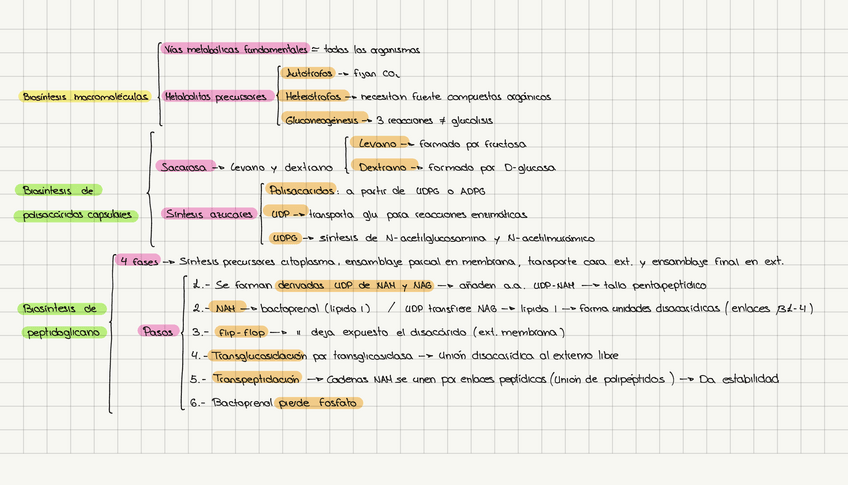 Vías metabólicas fundamentales = todos los organismos
Autótrofos -> fijan CO₂
Biosíntesis macromoléculas
Metabolitos precursores
Heterótrofos -> necesitan fuente compuestos orgánicos
Gluconeogénesis -> 3 reacciones ≠ glucolisis
Levano -> formado por fructosa
Sacarosa -> Levano y dextrano
Dextrano -> formado por D-glucosa
Biosíntesis de
polisacáridos capsulares
Polisacaridos: a partir de UDPG o ADPG
Síntesis azucares
UDP -> transporta glu para reacciones enzimáticas
UDPG -> síntesis de N-acetilglucosamina y N-acetilmurámico
4 fases -> Síntesis precursores citoplasma, ensamblaje parcial en membrana, transporte cara ext. y ensamblaje final en ext.
1.- Se forman derivados UDP de NAM y NAG -> añaden a.a. UDP-NAM -> tallo pentapeptídico
Biosíntesis de
peptidoglicano
2.- NAM -> bactoprenol (lípido 1) / UDP transfiere NAG -> lípido 1 -> forma unidades disacarídicas (enlaces β1-4)
Pasos
3.- Flip-flop -> " deja expuesto el disacárido (ext. membrana)
4.- Transglucosidación por transglicosidasa -> Unión disacarídica al extremo libre
5.- Transpeptidación -> Cadenas NAM se unen por enlaces peptídicos (Unión de polipéptidos) -> Da estabilidad
6.- Bactoprenol pierde fosfato